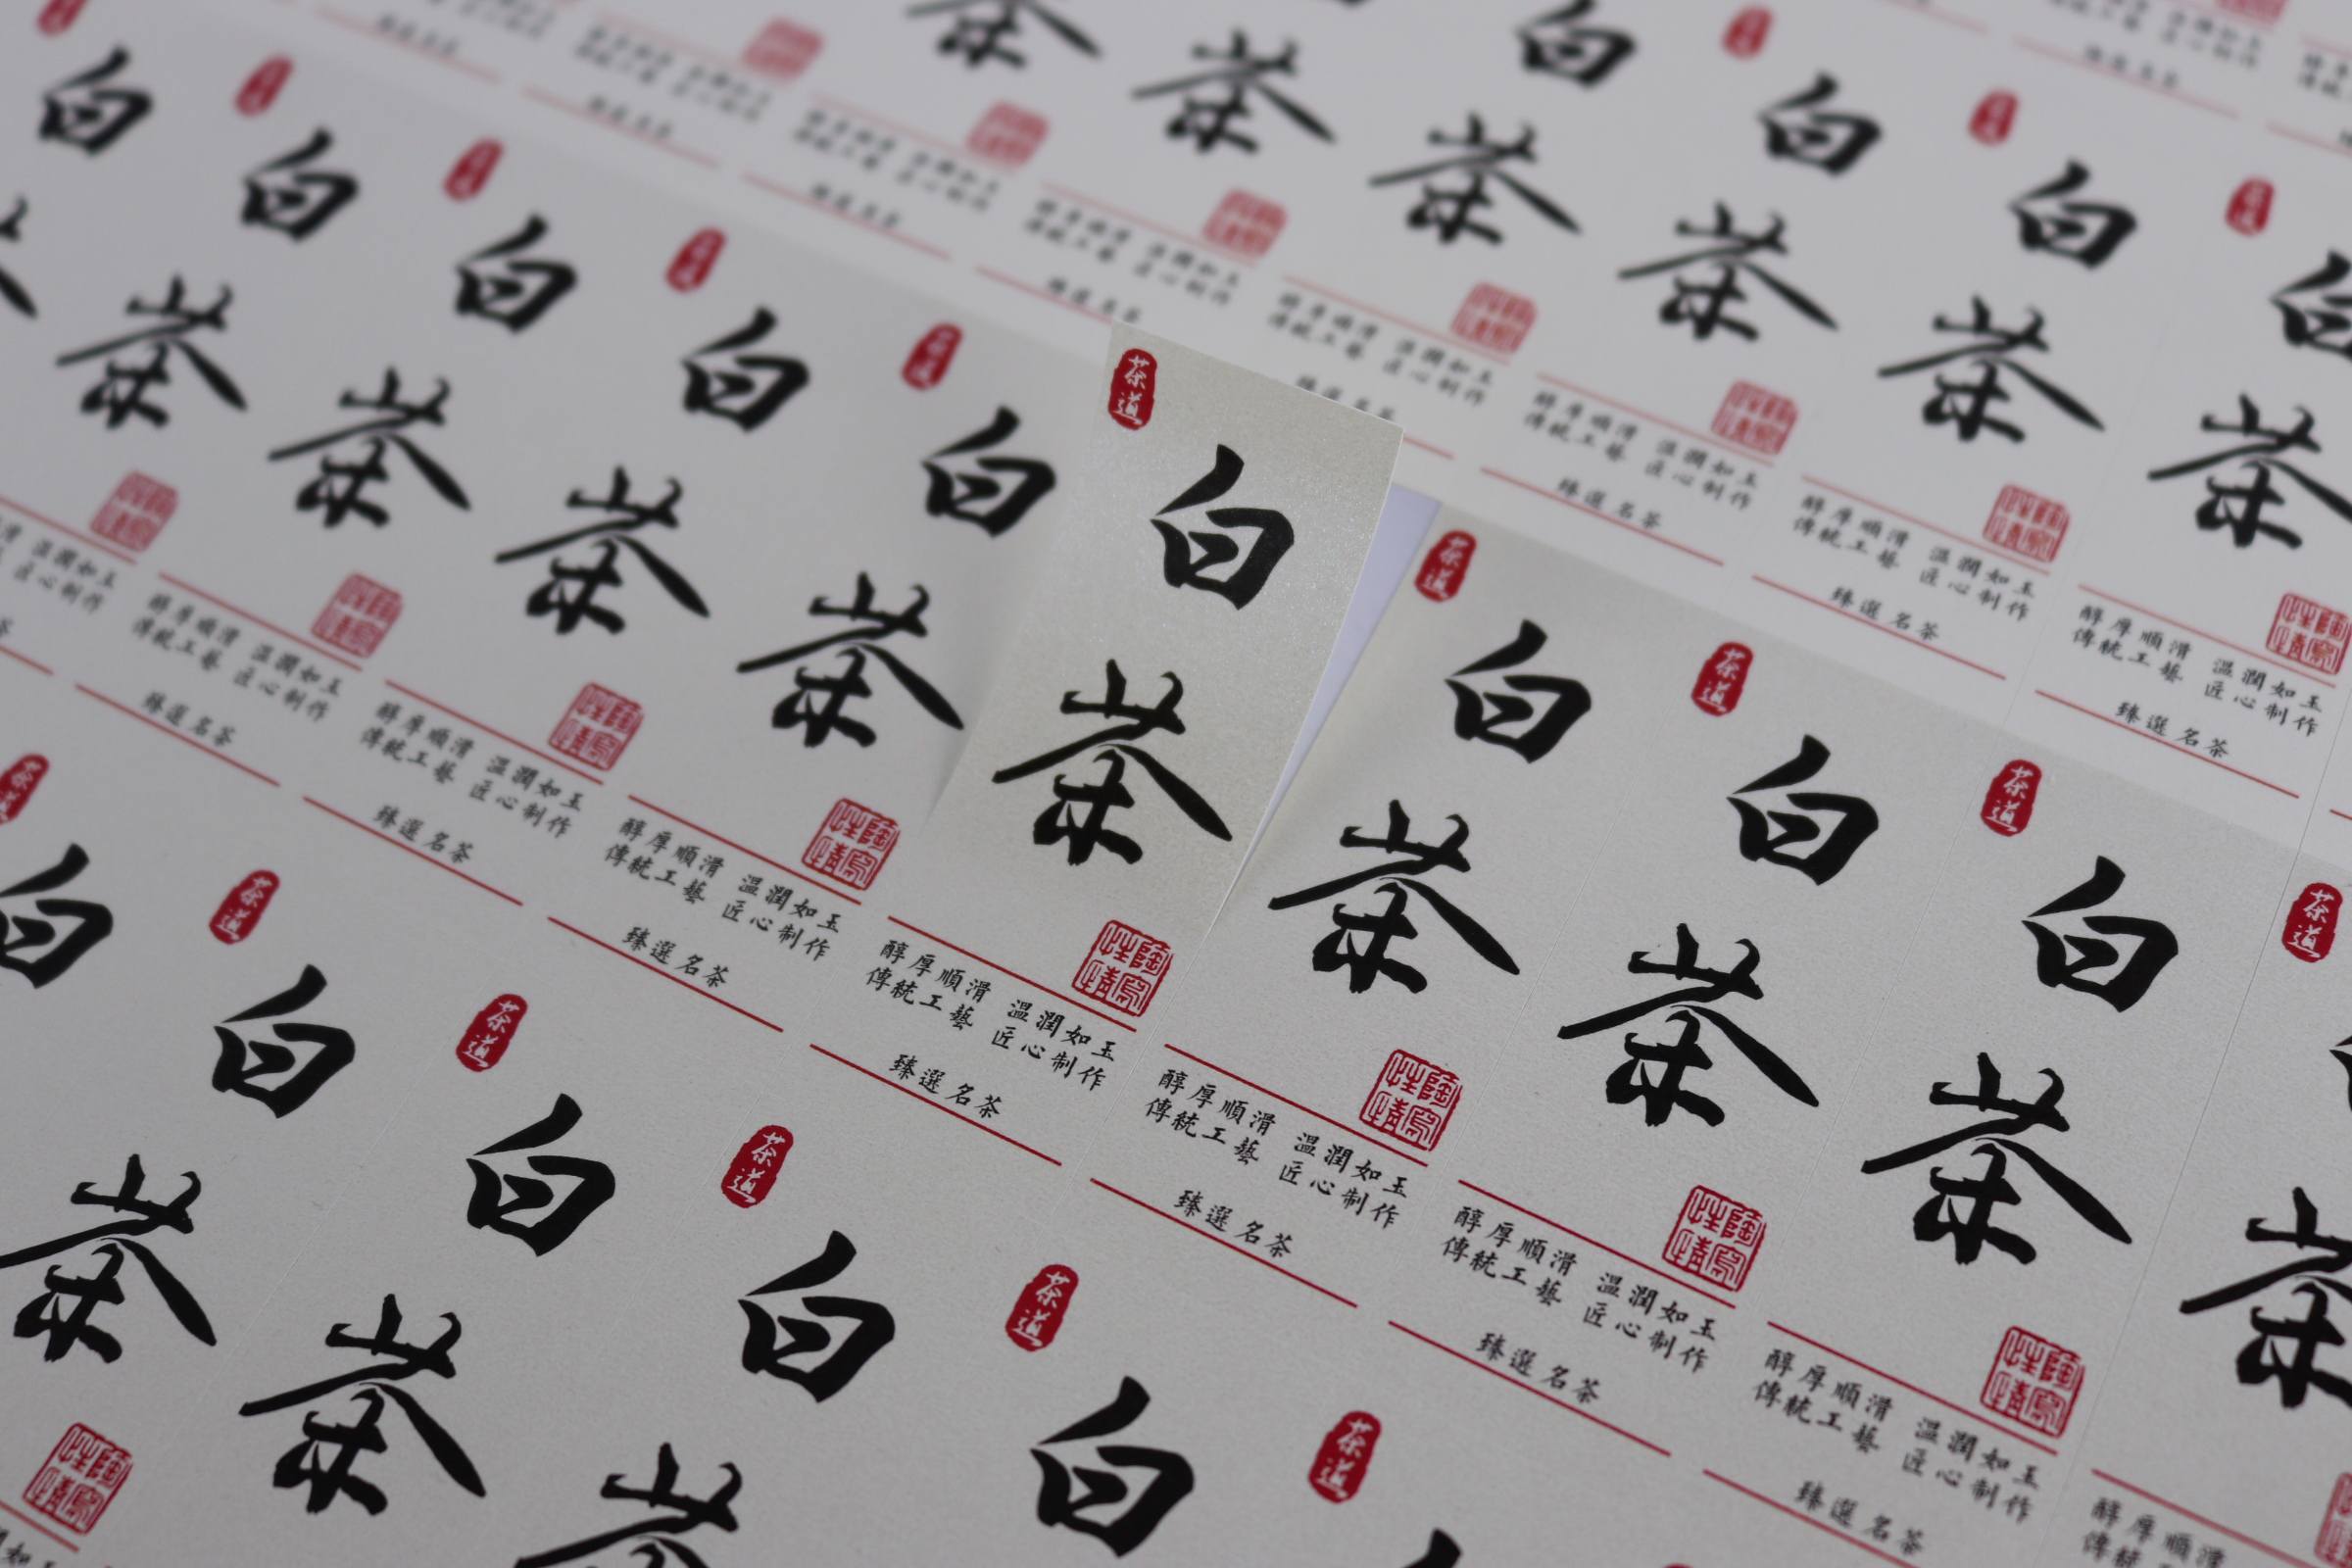 茶道
白
茶
陶冶
性情
醇厚順滑 溫潤如玉
傳統工藝 匠心制作
臻選名茶